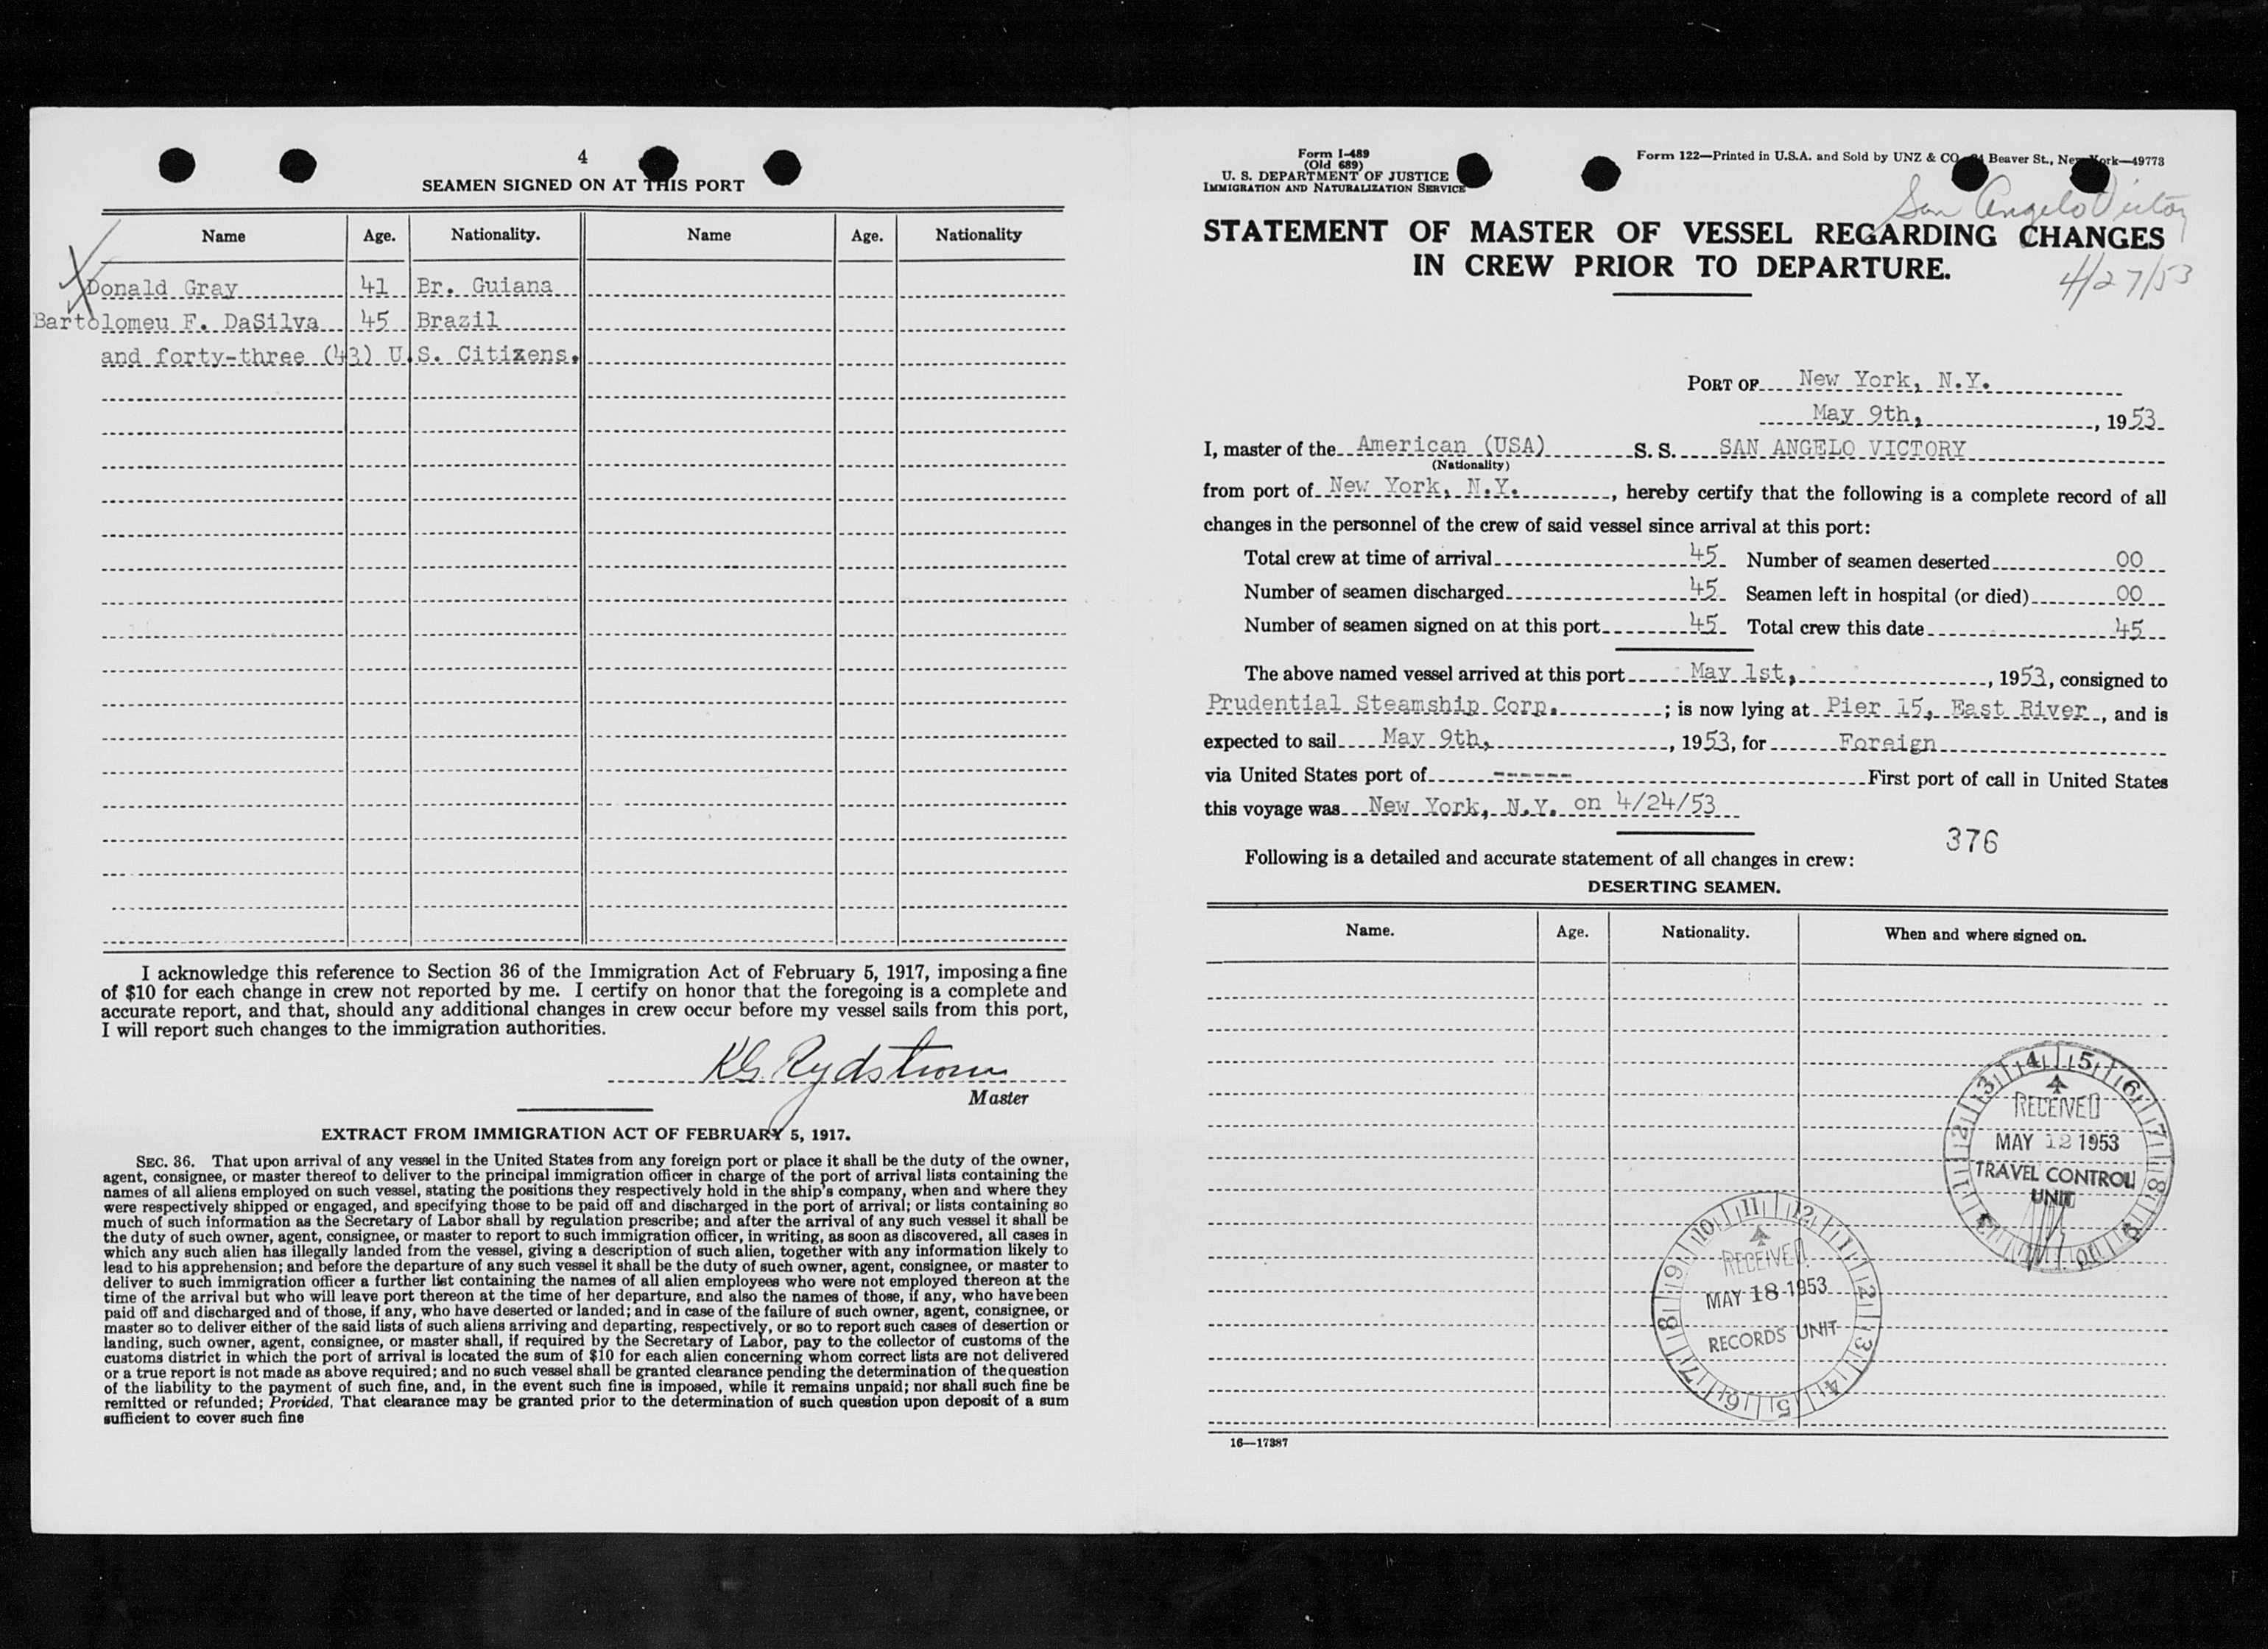 4
SEAMEN SIGNED ON AT THIS PORT
Name Age. Nationality. Name Age. Nationality
Donald Gray 41 Br. Guiana
Bartolomeu F. DaSilva 45 Brazil
and forty-three (43) U.S. Citizens.
I acknowledge this reference to Section 36 of the Immigration Act of February 5, 1917, imposing a fine
of $10 for each change in crew not reported by me. I certify on honor that the foregoing is a complete and
accurate report, and that, should any additional changes in crew occur before my vessel sails from this port,
I will report such changes to the immigration authorities.
KG Rydstrom
Master
EXTRACT FROM IMMIGRATION ACT OF FEBRUARY 5, 1917.
SEC. 36. That upon arrival of any vessel in the United States from any foreign port or place it shall be the duty of the owner,
agent, consignee, or master thereof to deliver to the principal immigration officer in charge of the port of arrival lists containing the
names of all aliens employed on such vessel, stating the positions they respectively hold in the ship's company, when and where they
were respectively shipped or engaged, and specifying those to be paid off and discharged in the port of arrival; or lists containing so
much of such information as the Secretary of Labor shall by regulation prescribe; and after the arrival of any such vessel it shall be
the duty of such owner, agent, consignee, or master to report to such immigration officer, in writing, as soon as discovered, all cases in
which any such alien has illegally landed from the vessel, giving a description of such alien, together with any information likely to
lead to his apprehension; and before the departure of any such vessel it shall be the duty of such owner, agent, consignee, or master to
deliver to such immigration officer a further list containing the names of all alien employees who were not employed thereon at the
time of the arrival but who will leave port thereon at the time of her departure, and also the names of those, if any, who have been
paid off and discharged and of those, if any, who have deserted or landed; and in case of the failure of such owner, agent, consignee, or
master so to deliver either of the said lists of such aliens arriving and departing, respectively, or so to report such cases of desertion or
landing, such owner, agent, consignee, or master shall, if required by the Secretary of Labor, pay to the collector of customs of the
customs district in which the port of arrival is located the sum of $10 for each alien concerning whom correct lists are not delivered
or a true report is not made as above required; and no such vessel shall be granted clearance pending the determination of the question
of the liability to the payment of such fine, and, in the event such fine is imposed, while it remains unpaid; nor shall such fine be
remitted or refunded; Provided, That clearance may be granted prior to the determination of such question upon deposit of a sum
sufficient to cover such fine
Form I-489
(Old 689)
U. S. DEPARTMENT OF JUSTICE
IMMIGRATION AND NATURALIZATION SERVICE
Form 122—Printed in U.S.A. and Sold by UNZ & CO Beaver St., New York—49773
San Angelo Victory
STATEMENT OF MASTER OF VESSEL REGARDING CHANGES
IN CREW PRIOR TO DEPARTURE.
4/27/53
PORT OF New York, N.Y.
May 9th, , 1953
I, master of the American (USA) S. S. SAN ANGELO VICTORY
(Nationality)
from port of New York, N.Y. , hereby certify that the following is a complete record of all
changes in the personnel of the crew of said vessel since arrival at this port:
Total crew at time of arrival 45 Number of seamen deserted 00
Number of seamen discharged 45 Seamen left in hospital (or died) 00
Number of seamen signed on at this port 45 Total crew this date 45
The above named vessel arrived at this port May 1st, , 1953, consigned to
Prudential Steamship Corp. ; is now lying at Pier 15, East River , and is
expected to sail May 9th, , 1953, for Foreign
via United States port of ------ First port of call in United States
this voyage was New York, N.Y. on 4/24/53
376
Following is a detailed and accurate statement of all changes in crew:
DESERTING SEAMEN.
Name. Age. Nationality. When and where signed on.
RECEIVED
MAY 12 1953
TRAVEL CONTROL
UNIT
RECEIVED
MAY 18 1953
RECORDS UNIT
16—17387